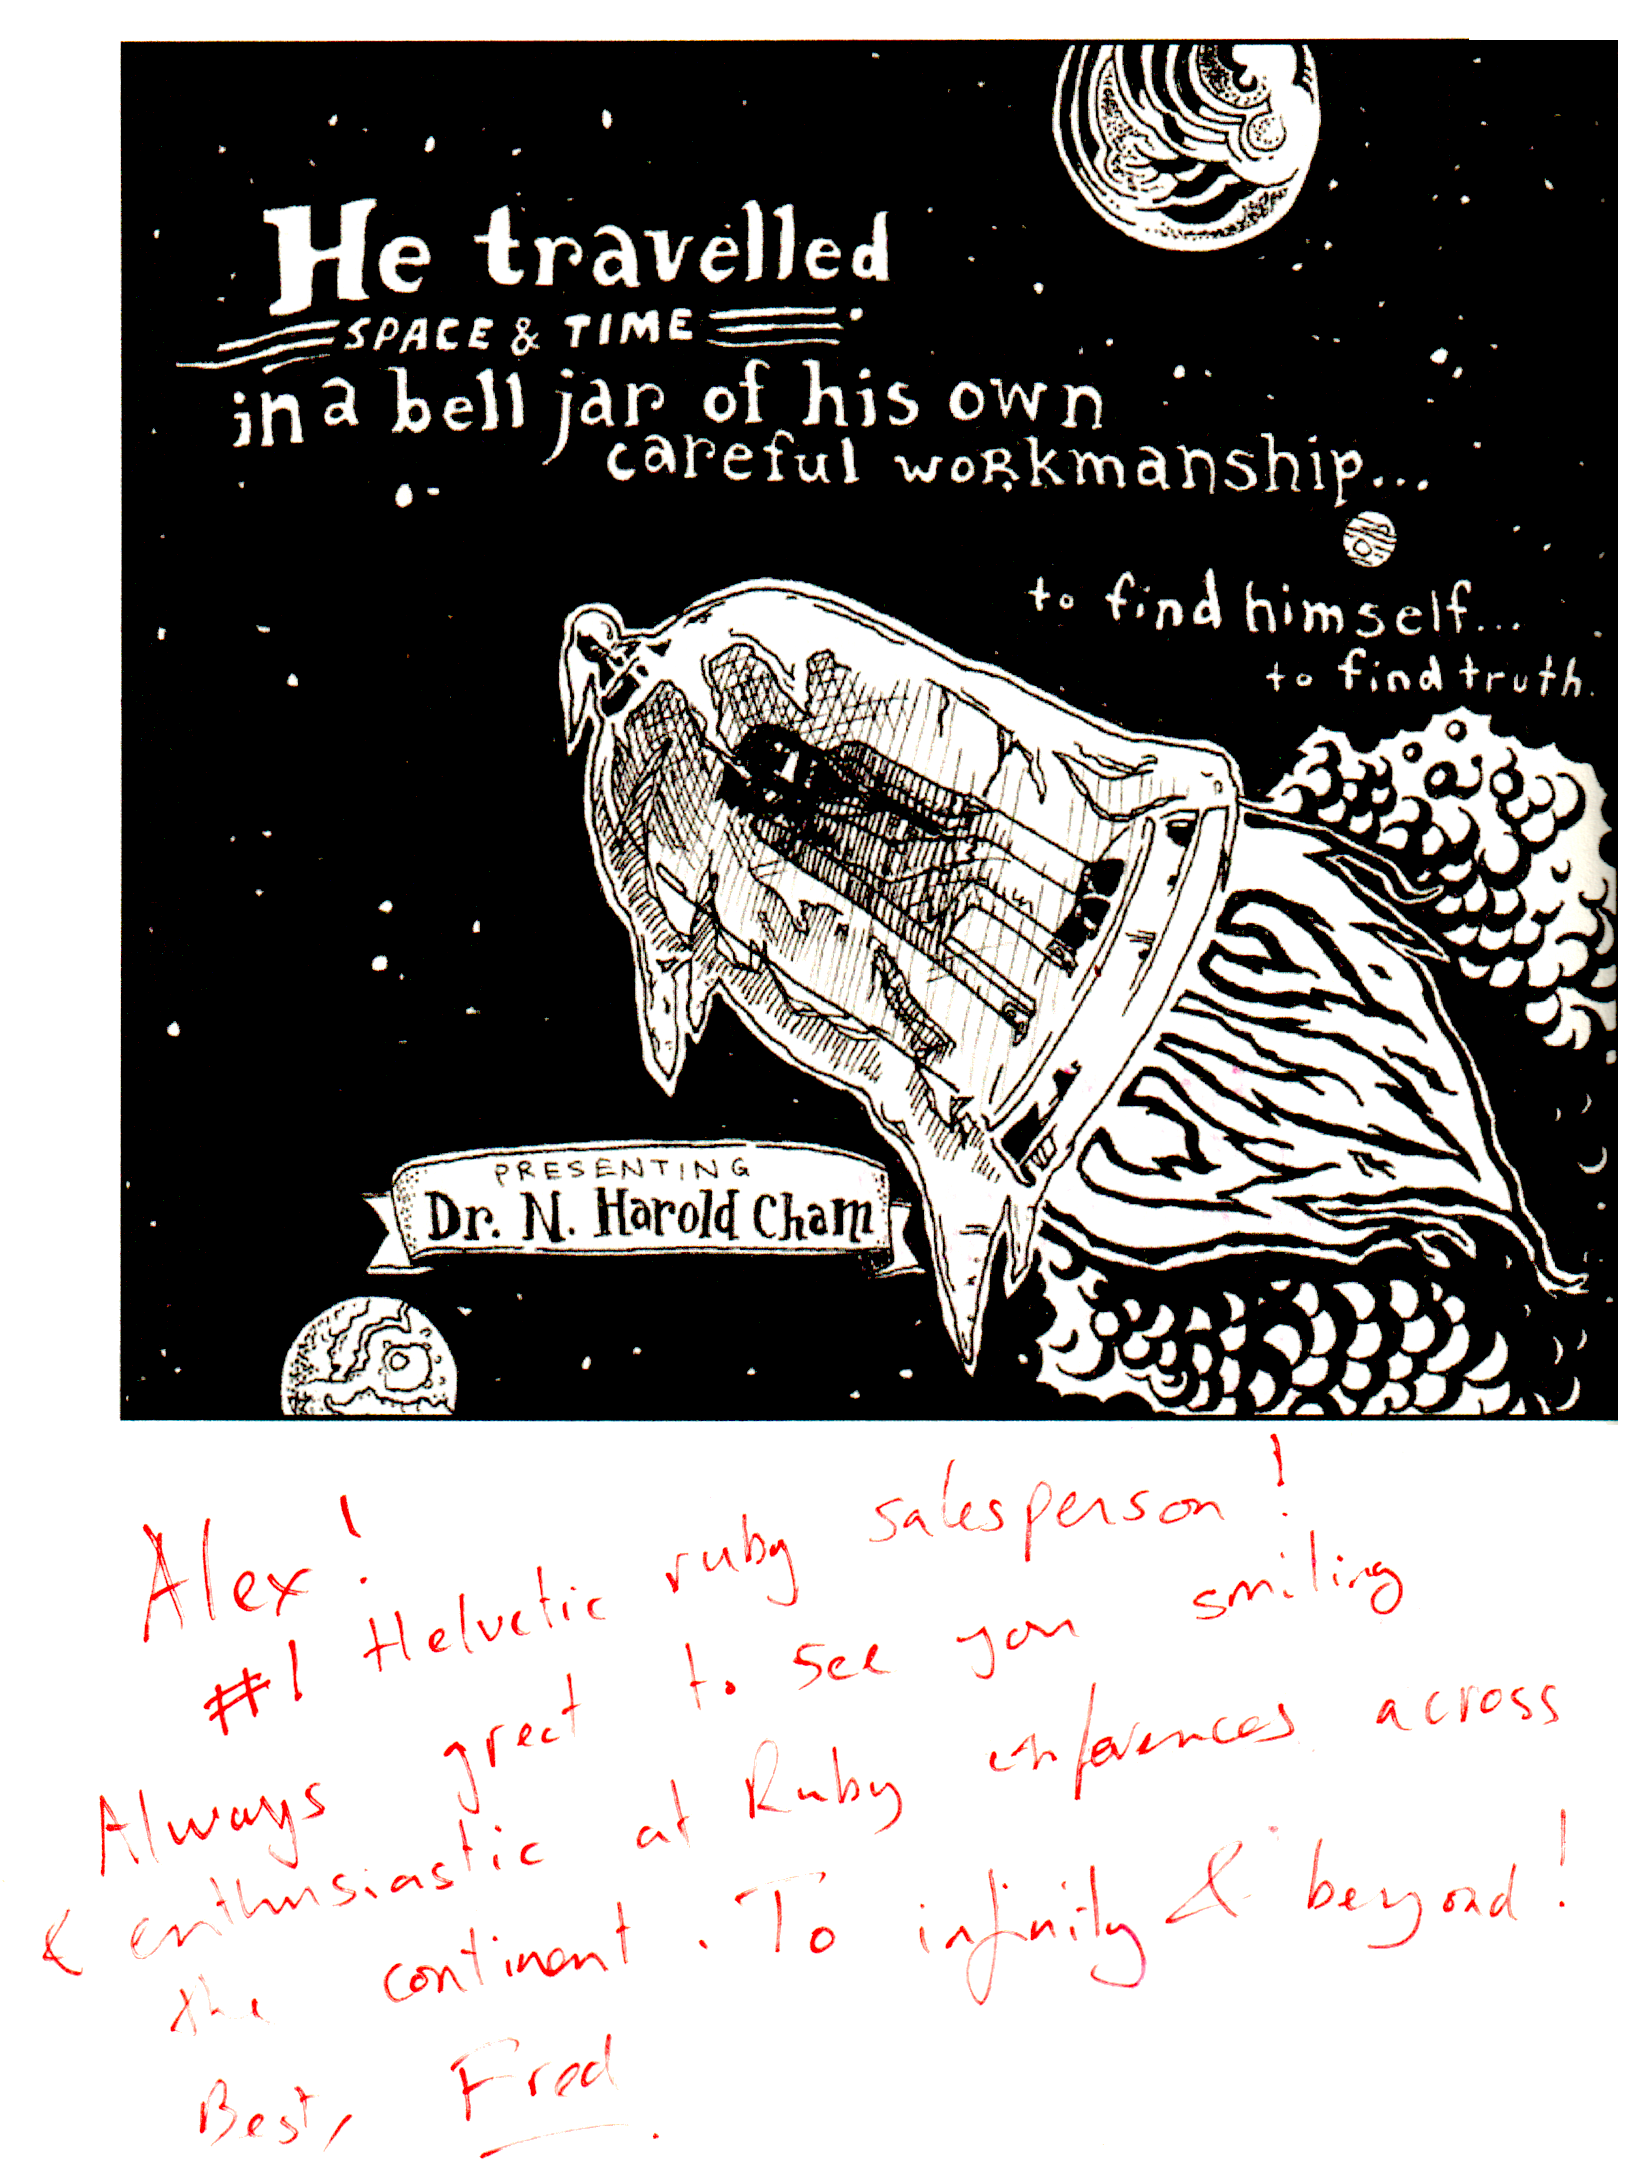 He travelled
SPACE & TIME
in a bell jar of his own
careful workmanship...
to find himself...
to find truth.
PRESENTING
Dr. N. Harold Cham
Alex!
#1 Helvetic ruby salesperson!
Always great to see you smiling
& enthusiastic at Ruby conferences across
the continent. To infinity & beyond!
Best, Fred.